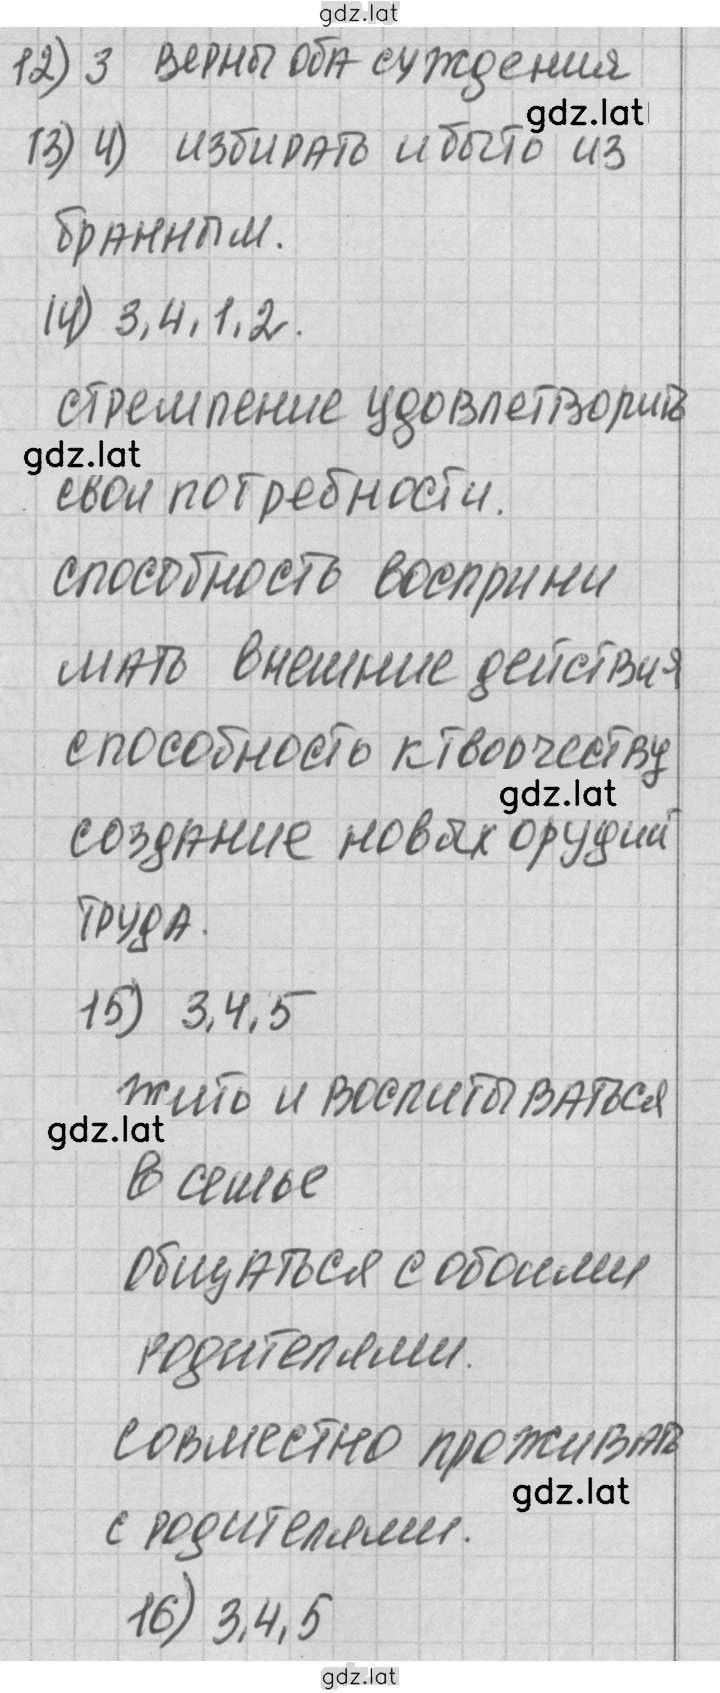 gdz.lat
12) 3 верны оба суждения
gdz.lat
13) 4) избирать и быть из
бранным.
14) 3,4,1,2.
стремление удовлетворить
gdz.lat
свои потребности.
способность восприни
мать внешние действия
способность к творчеству
gdz.lat
создание новых орудий
труда.
15) 3,4,5
жить и воспитываться
gdz.lat
в семье
общаться с обоими
родителями.
совместно проживать
gdz.lat
с родителями.
16) 3,4,5
gdz.lat